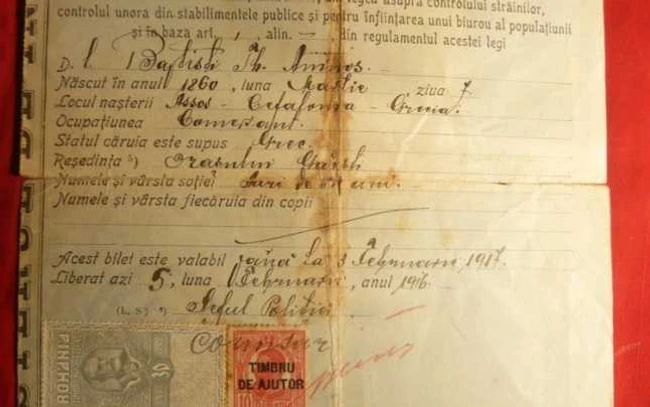 asupra controlului străinilor,
controlul unora din stabilimentele publice și pentru înființarea unui biurou al populațiunii
și în baza art. , alin. din regulamentul acestei legi
D. l
Născut în anul 1860, luna Martie, ziua 7.
Locul nașterii Assos - Cefalonia - Grecia.
Ocupațiunea Comersant.
Statul căruia este supus Grec.
Reședința Orașului
Numele și vârsta soției ani.
Numele și vârsta fiecăruia din copii
Acest bilet este valabil până la 3 Februarie 1917.
Liberat azi 5, luna Februarie, anul 1916
(L. S.) Șeful Poliției
Comisar
ROMANIA
TIMBRU
DE AJUTOR
10